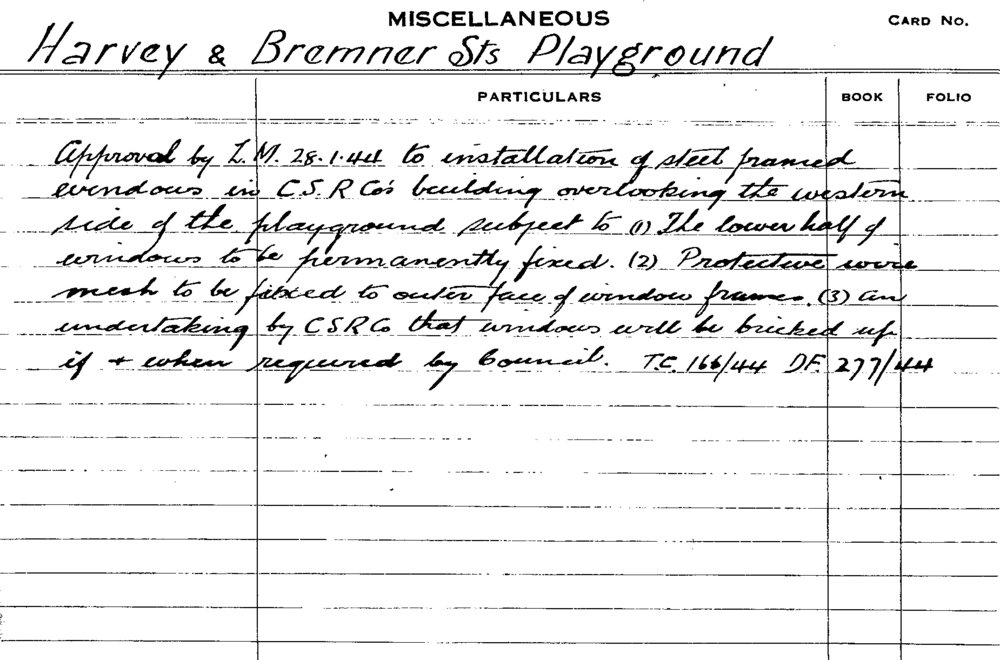 MISCELLANEOUS
CARD NO.
Harvey & Bremner Sts Playground
PARTICULARS BOOK FOLIO
Approval by L.M. 28.1.44 to installation of steel framed
windows in C.S.R Co's building overlooking the western
side of the playground subject to (1) The lower half of
windows to be permanently fixed. (2) Protective wire
mesh to be fixed to outer face of window frames. (3) An
undertaking by CSR Co that windows will be bricked up
if + when required by Council. T.C. 166/44 DF. 277/44